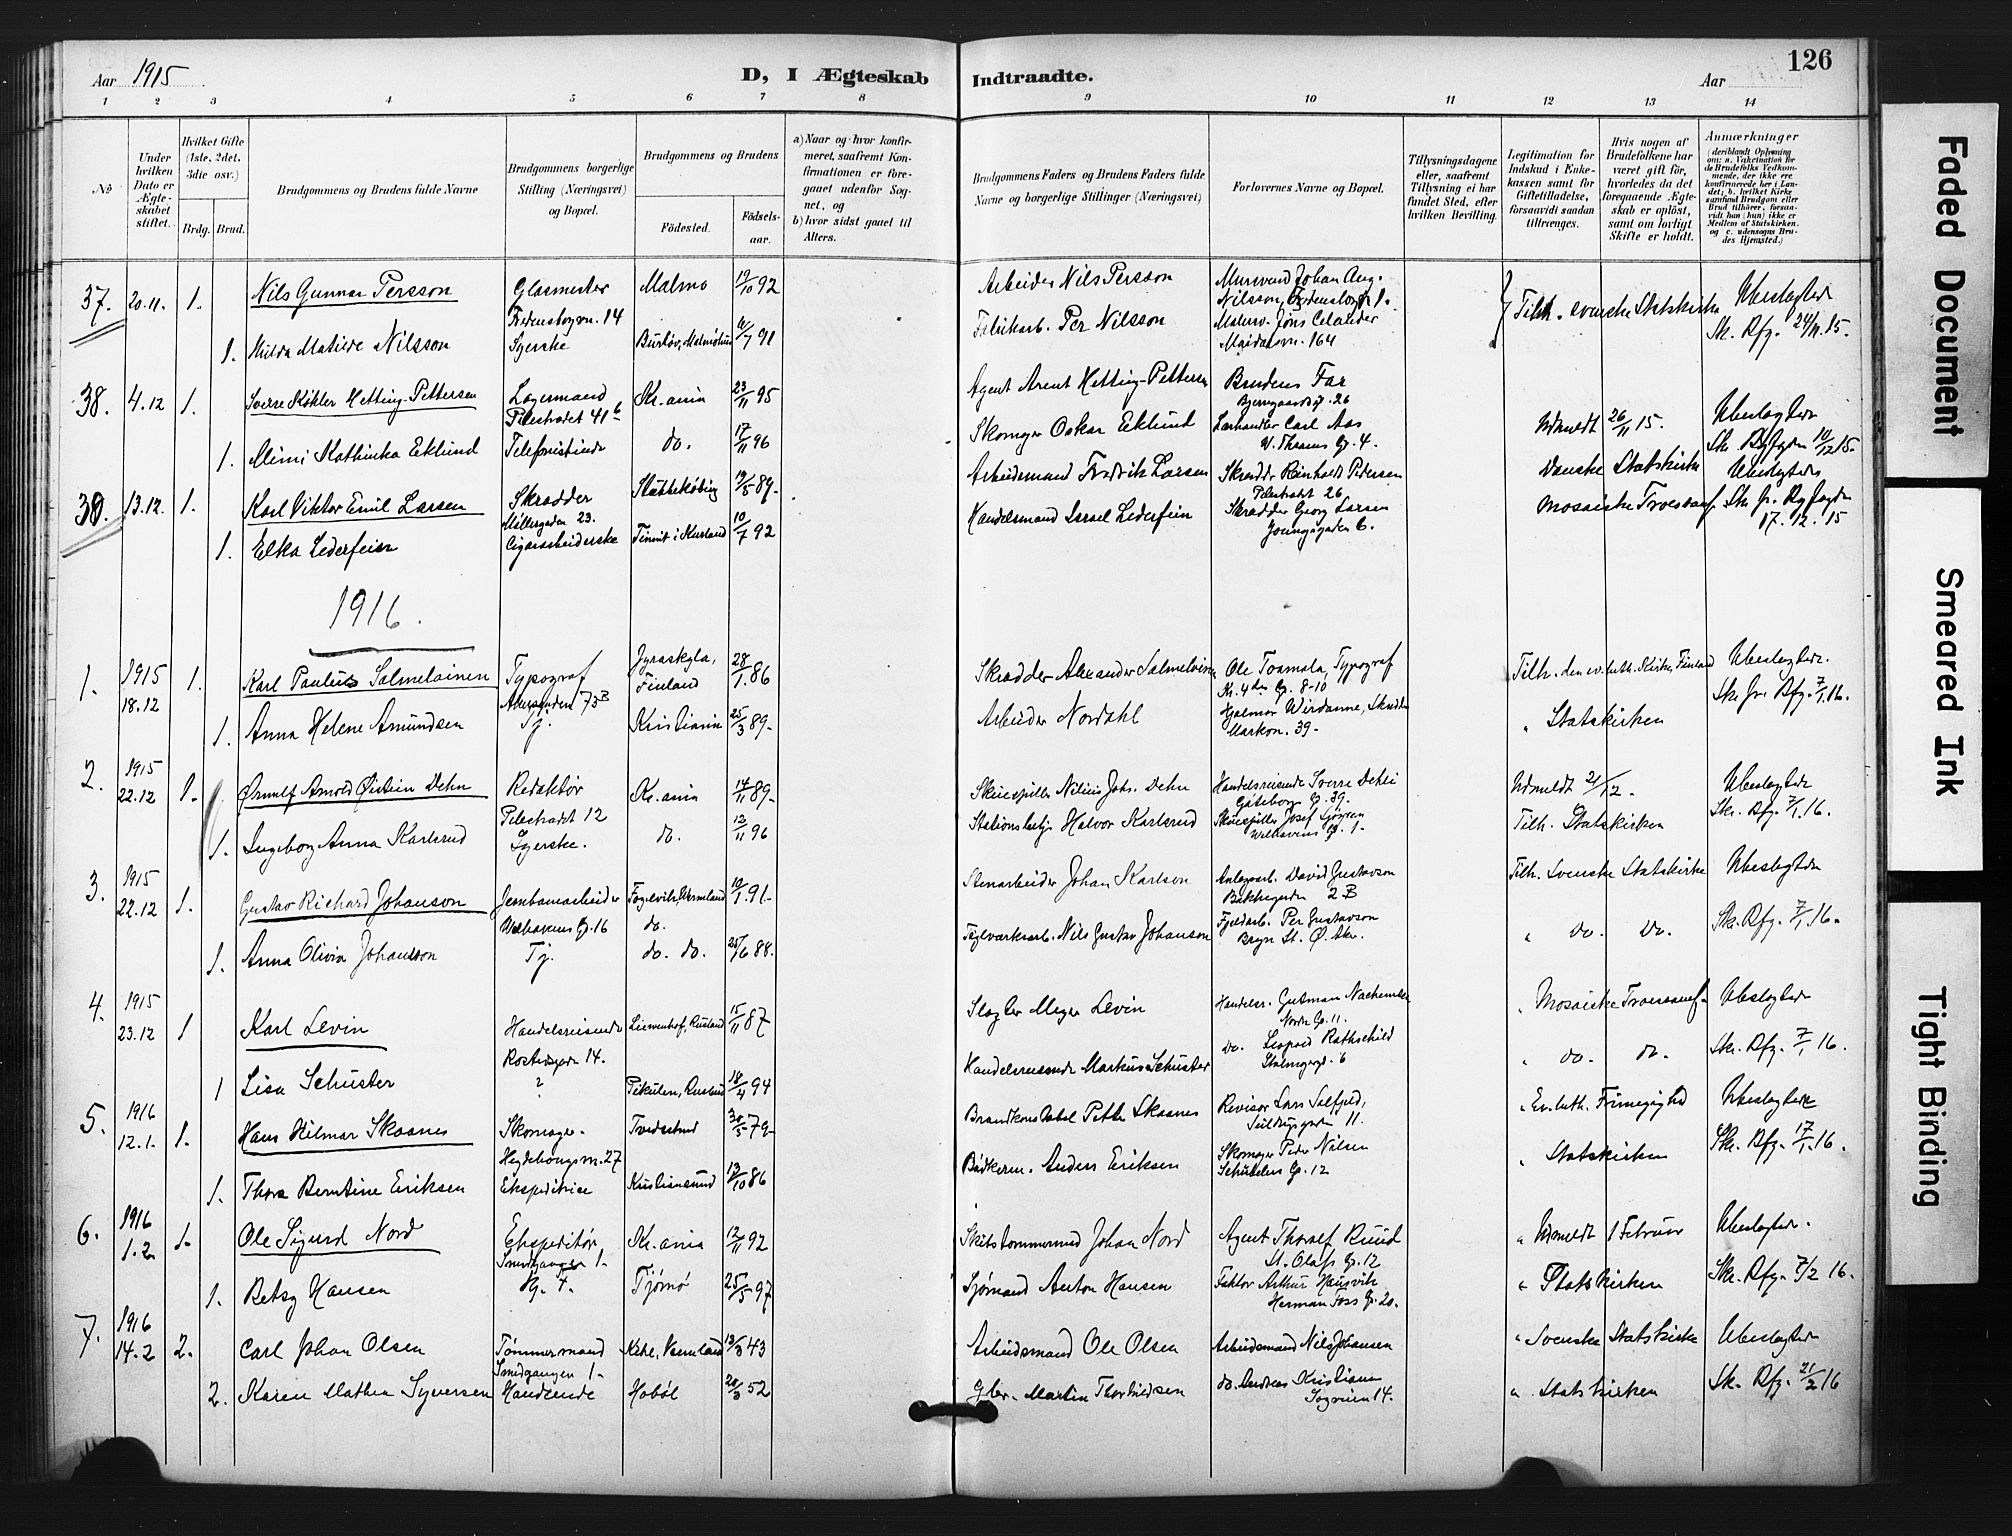 126
Aar 1915
D, I Ægteskab Indtraadte.
Aar
1 2 3 4 5 6 7 8 9 10 11 12 13 14
No
Under hvilken Dato er Ægteskabet stiftet.
Hvilket Gifte (1ste, 2det, 3die osv.)
Brdg. Brud.
Brudgommens og Brudens fulde Navne
Brudgommens borgerlige Stilling (Næringsvei) og Bopæl.
Brudgommens og Brudens
Fødested.
Fødselsaar.
a) Naar og hvor konfirmeret, saafremt Konfirmationen er foregaaet udenfor Sognet, og
b) hvor sidst gaaet til Alters.
Brudgommens Faders og Brudens Faders fulde Navne og borgerlige Stillinger (Næringsvei)
Forlovernes Navne og Bopæl.
Tillysningsdagene eller, saafremt Tillysning ei har fundet Sted, efter hvilken Bevilling.
Legitimation for Indskud i Enkekassen samt for Giftetilladelse, forsaavidt saadan tiltrænges.
Hvis nogen af Brudefolkene har været gift før, hvorledes da det foregaaende Ægteskab er opløst, samt om lovligt Skifte er holdt.
Anmærkninger
(deriblandt Oplysning om: a. Vakcination for de Brudefolks Vedkommende, der ikke ere konfirmerede her i Landet; b. hvilket Kirkesamfund Brudgom eller Brud tilhører, forsaavidt han (hun) ikke er Medlem af Statskirken, og c. udensogns Brudes Hjemsted.)
37. 20.11. 1. Nils Gunnar Persson Glasmester Malmø 19/10 92 Arbeider Nils Persson Murersvend Johan Aug. Ubeslægtede
Fredensborgvn. 14 Nilsson, Tilh. svenske Statskirke
1. Hilda Matilde Nilsson Syerske Burløv, Malmøhus 91 Fabrikarb. Per Nilsson Malersv. Jöns Celander Sk. Rfg. 24/11.15.
Maridalsvn. 164
38. 4.12 1. Sverre Køhler Hetting-Pettersen Lagermand Kr.ania 23/11 95 Agent Arent Hetting-Pettersen Brudens Far Ubeslægtede
Pilestrædet 41b Bjerregaardsg. 26 Udmeldt 26/11 15.
1. Mimi Kathinka Eklund Telefonistinde do. 17/11 96 Skomager Oskar Eklund Carl Aas
Thranes G. 4.
39. 13.12. 1. Karl Viktor Emil Larsen Skrædder Stubbekøbing 19/5 89. Arbeidsmand Fredrik Larsen Skrædder Reinholt Pedersen Danske Statskirke Ubeslægtede
Møllergaden 23. Pilestrædet 26
1. Elka Lederfein Cigararbeiderske i Kurland 10/7 92 Handelsmand Israel Lederfein Skrædder Georg Larsen Mosaiske Troessamf.
Youngsgaden 6. 17.12.15
1916.
1. 1915 18.12 1. Karl Paulus Salmelainen Typograf Jyraskyla, Finland 28/1.86 Skrædder Alexander Salmelainen Ole Toamala, Typograf Tilh. den ev. luth. Kirke, Finland Ubeslægtede.
Akersgaden 73B Kr. 4des G. 8-10 Sk. Rfg. 7/1.16.
1. Anna Helene Amundsen Tj. Kristiania 25/3 89- Arbeider Nordahl Hjalmar Wirdanne, Skrædder " Statskirken
Markvn. 39-
2. 1915 22.12 1. Ørnulf Arnold Øistein Dehn Redaktør Kr.ania 14/11 89- Skuespiller Nilius Johs. Dehn Handelsreisende Sverre Dehli Udmeldt 21/12. Ubeslægtede
Pilestrædet 12 Gøteborg G. 39.
1. Ingeborg Anna Karlsrud Syerske. do. 12/11 96 Stationsbetj. Halvor Karlsrud Skuespiller Josef Tilh. Statskirken Sk. Rfg. 7/1.16.
Welhavens G. 1-
3. 1915 22.12 1. Gustav Richard Johanson Jernbanearbeider Vermland 10/1.91- Stenarbeider Johan Karlson Anlægsarb. David Gustavson Tilh. Svenske Statskirke Ubeslægtede
Welhavens G. 16 do. 2 B
1. Anna Olivia Johansson Tj. do. do. 25/6 88. Teglværksarb. Nils Gustav Johanson Fjeldarb. Per Gustavson " do. do. Sk. Rfg. 7/1 16.
Bryn St. Ø. Aker.
4. 1915 23.12 1 Karl Levin Handelsreisende Rusland 15/11 87 Slagter Meyer Levin Handelsr. Gutman " Mosaiske Troessamf. Ubeslægtede
14. Nordre G. 11.
1 Lisa Schuster ? Pikulen, Rusland 18/4 94 Handelsreisende Markus Schuster do. Leopold Rathschild " do. do. Sk. Rfg. 7/1 16.
5. 1916 12.1. 1. Hans Hilmar Skaanes Skomager. Tvedestrand 30/5 79- Brandkonstabel Petter Skaanes Revisor Lars " Ev. luth. Frimenighed Ubeslægtede
27 11.
1. Thora Berntine Eriksen Ekspeditrice Kristiansund 13/10 86 Bødkerm. Anders Eriksen Skomager Peder Nilsen " Statskirken Sk. Rfg. 17/1.16.
Schübelers G. 12
6. 1916 1.2. 1. Ole Sigurd Nord Ekspeditør, Kr.ania 12/11 92 Skibstømmermand Johan Nord Agent Thoralf Ruud " Udmeldt 1 Februar Ubeslægtede.
Smedgangen 1- St. Olafs G. 12
1. Betsy Hansen Tjømø 25/5 97 Sjømand Anton Hansen Faktor Arthur Hausvik " Statskirken Sk. Rfg. 7/2 16.
Herman Foss G. 20.
7. 1916 14.2 2. Carl Johan Olsen Tømmermand Vermland 43 Arbeidsmand Ole Olsen Arbeidsmand Nils Johansen " Svenske Statskirke Ubeslægtede
Smedgangen 1-
2. Karen Mathea Syversen Hobøl 20/3 52 Gbr. Martin Thorkildsen do. Andreas Kristiansen " Statskirken Sk. Rfg. 21/2 16
14.
Faded Document
Smeared Ink
Tight Binding